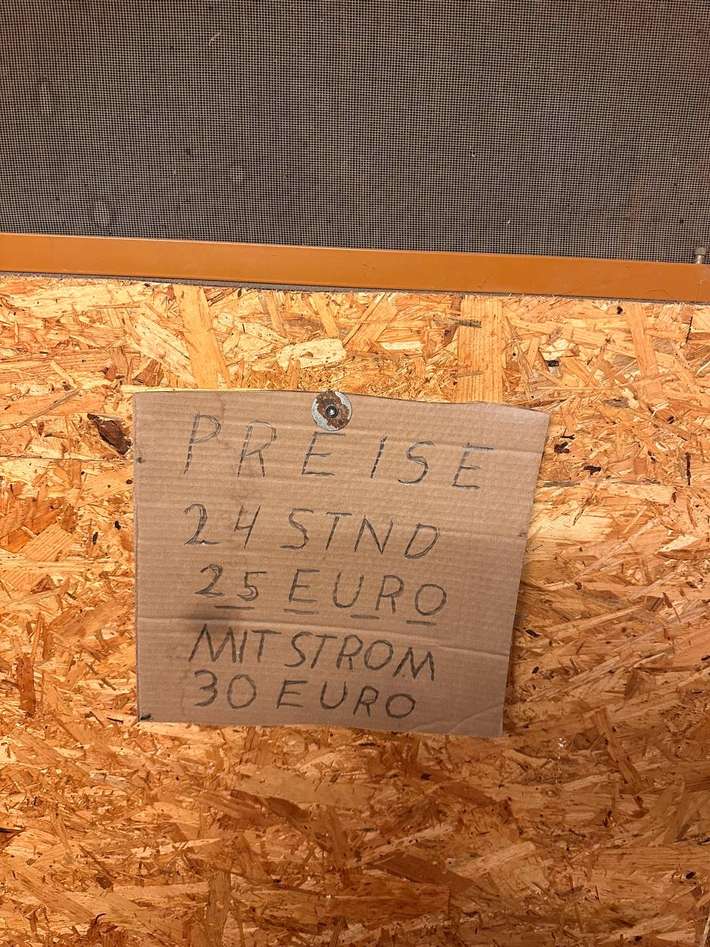 PREISE
24 STND
25 EURO
MIT STROM
30 EURO